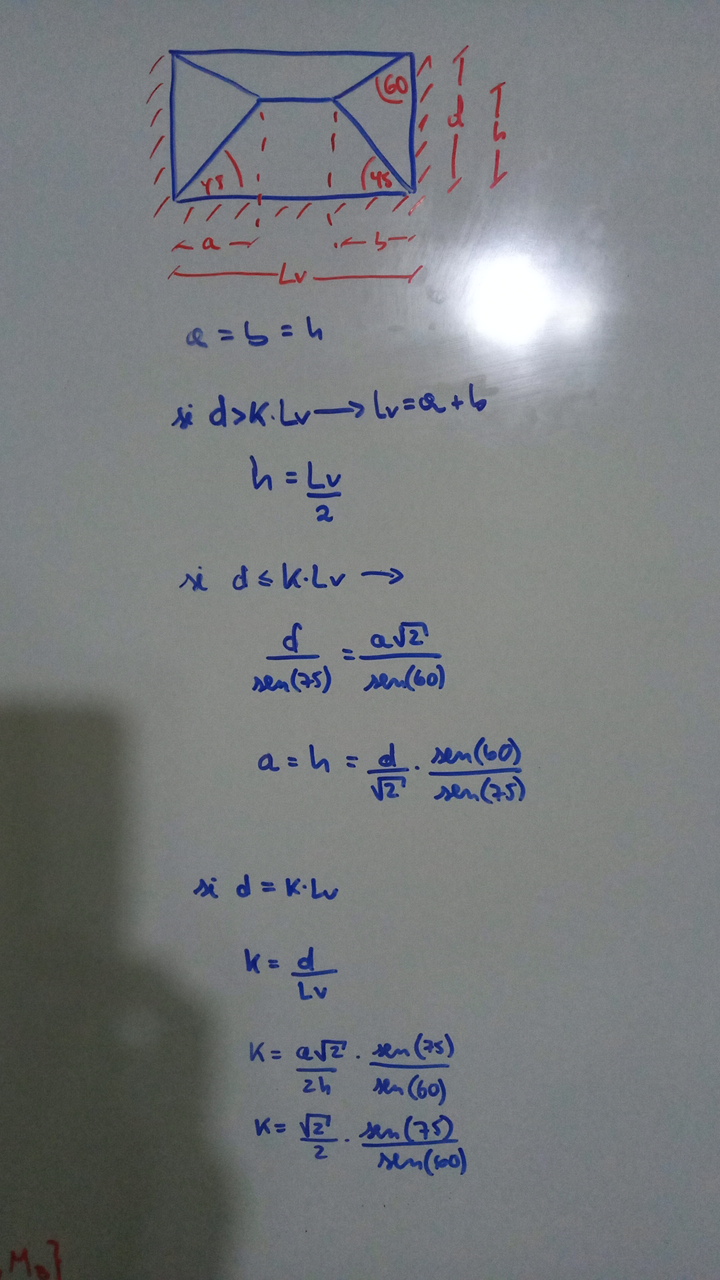 60
d
h
45
45
a
b
Lv
a = b = h
si d > K·Lv → Lv = a + b
h = Lv/2
si d ≤ K·Lv →
d/sen(75) = a√2/sen(60)
a = h = d/√2 · sen(60)/sen(75)
si d = K·Lv
K = d/Lv
K = a√2/2h · sen(75)/sen(60)
K = √2/2 · sen(75)/sen(60)
, M₃}